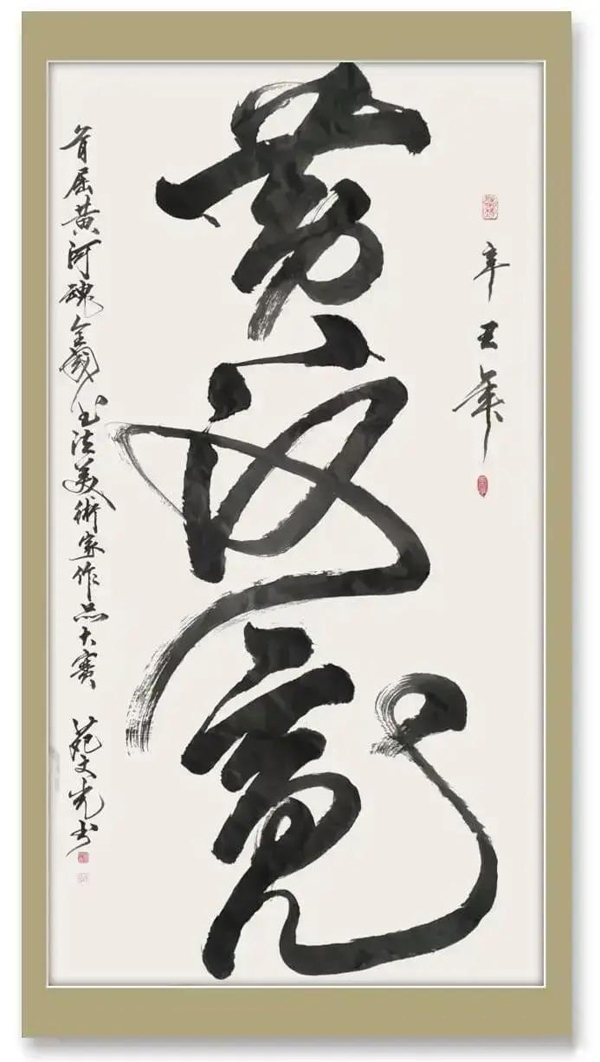 辛丑年
黄河魂
首届黄河魂全國书法美術家作品大赛 范文光书